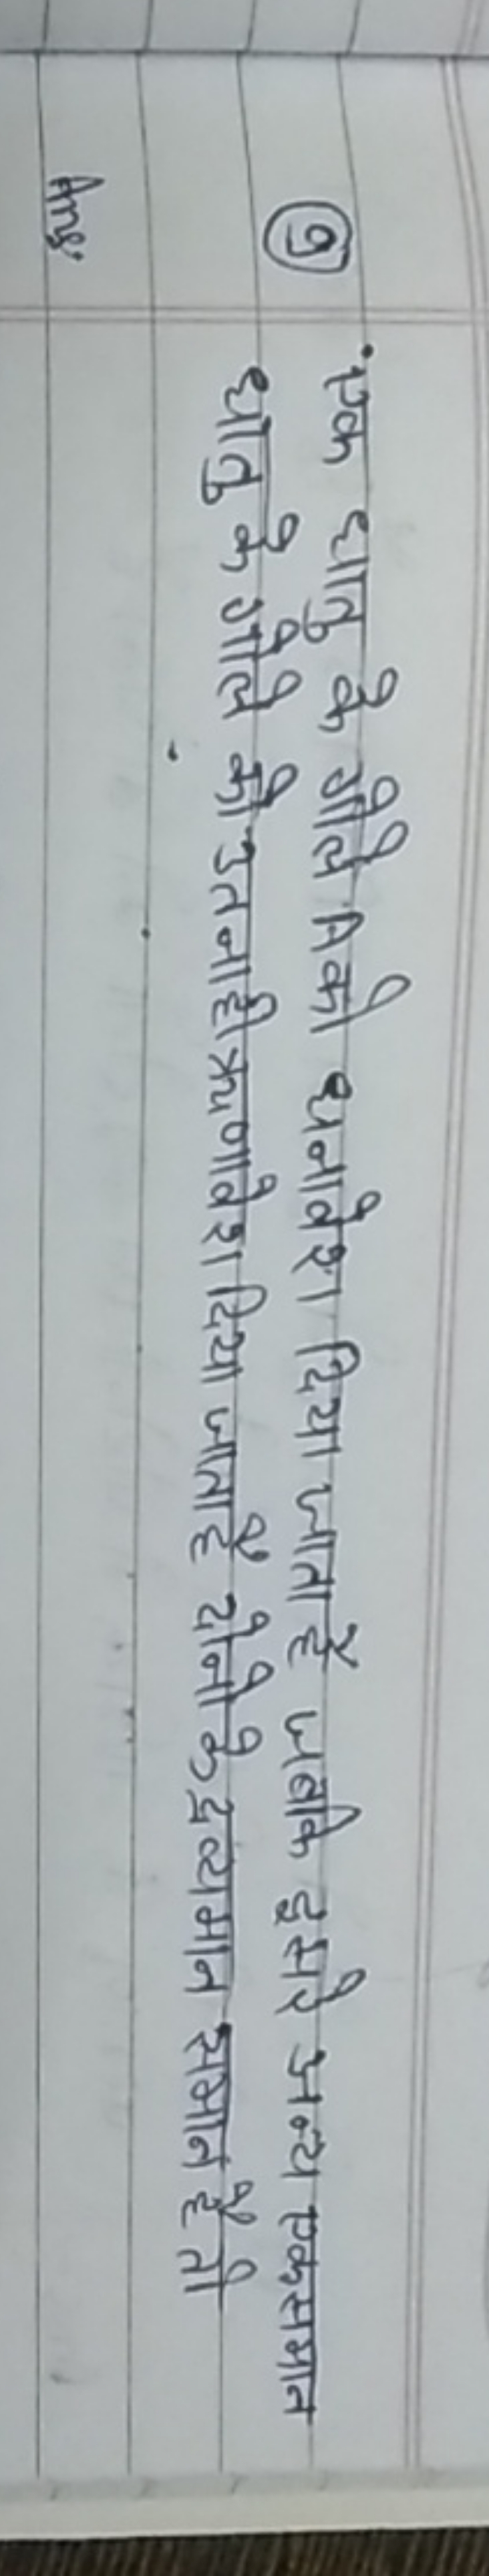 9 एक धातु के गोले A को धनावेश दिया जाता है जबकि दूसरे अन्य एकसमान
धातु के गोले को उतना ही ऋणावेश दिया जाता है दोनो के द्रव्यमान समान है तो
Ans: